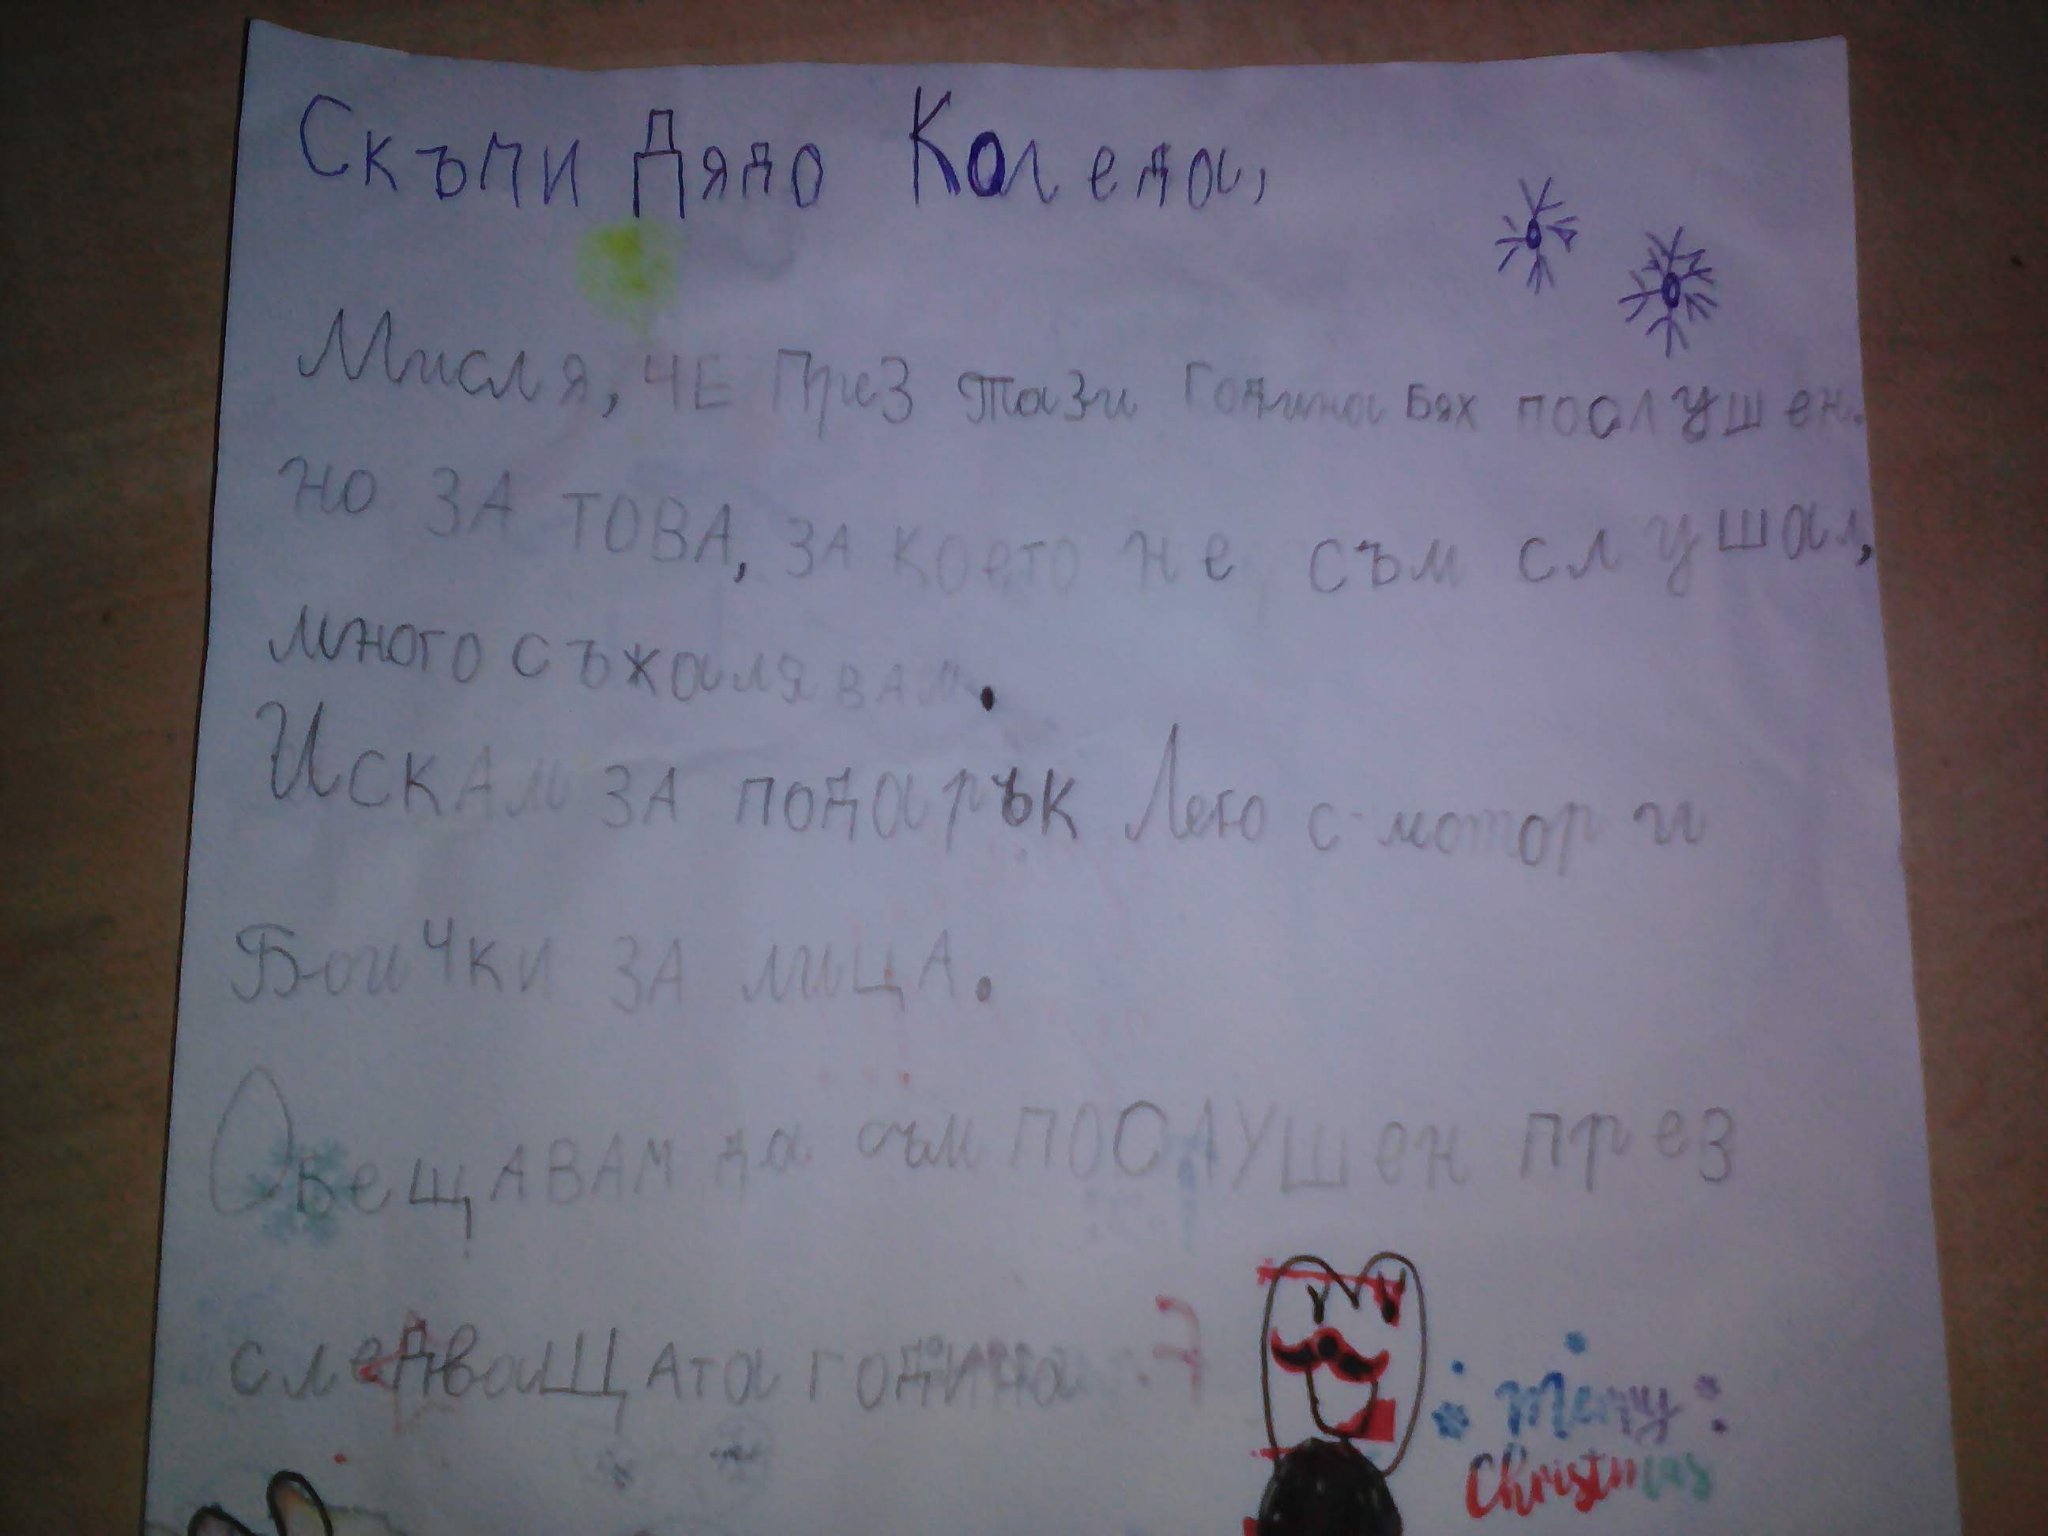 Скъпи Дядо Коледа,
Мисля, ЧЕ През тази Година Бях послушен.
но ЗА ТОВА, ЗА което не съм слушал,
много съжалявам.
Искам ЗА подарък Лего с мотор и
Боички ЗА лица.
ОбещАВАМ да съм ПОСЛУШен през
следващАта година
Merry
Christmas